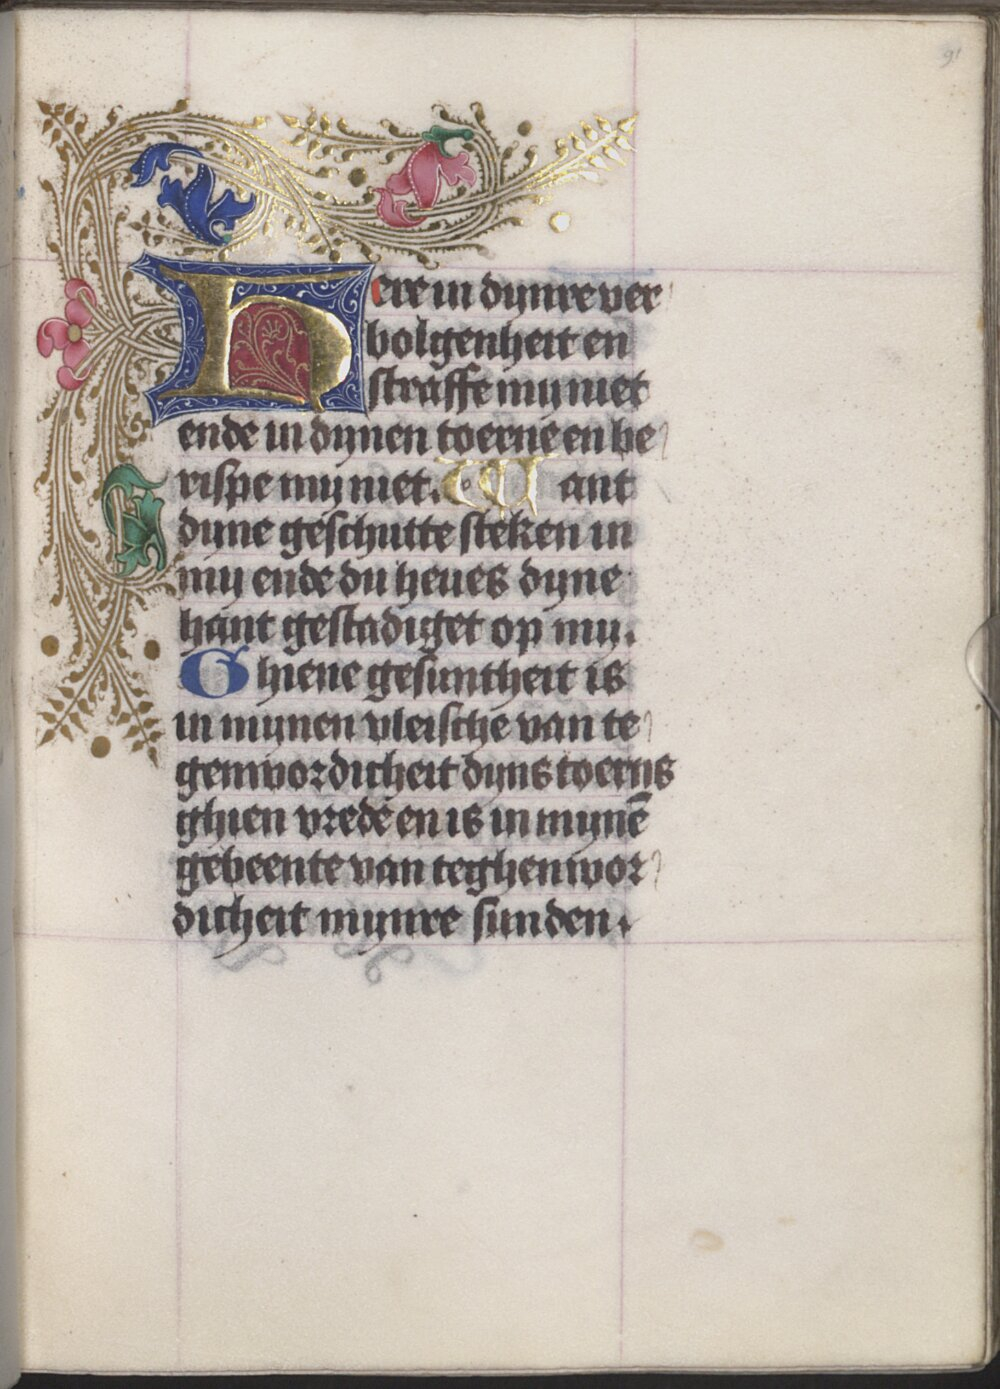 91
Here in dynre ver
bolgenheit en
straffe my niet
ende in dynen toerne en be
rispe my niet. Want
dyne geschutte steken in
my ende du heues dyne
hant gestadiget op my.
Ghiene gesuntheit is
in mynen vleische van te
genwordicheit dyns toerns
ghien vrede en is in mynē
gebeente van teghenwor
dicheit mynre sunden.